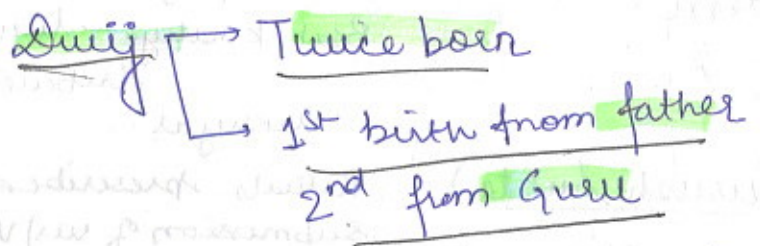 Dwij → Twice born
→ 1st birth from father
2nd from Guru